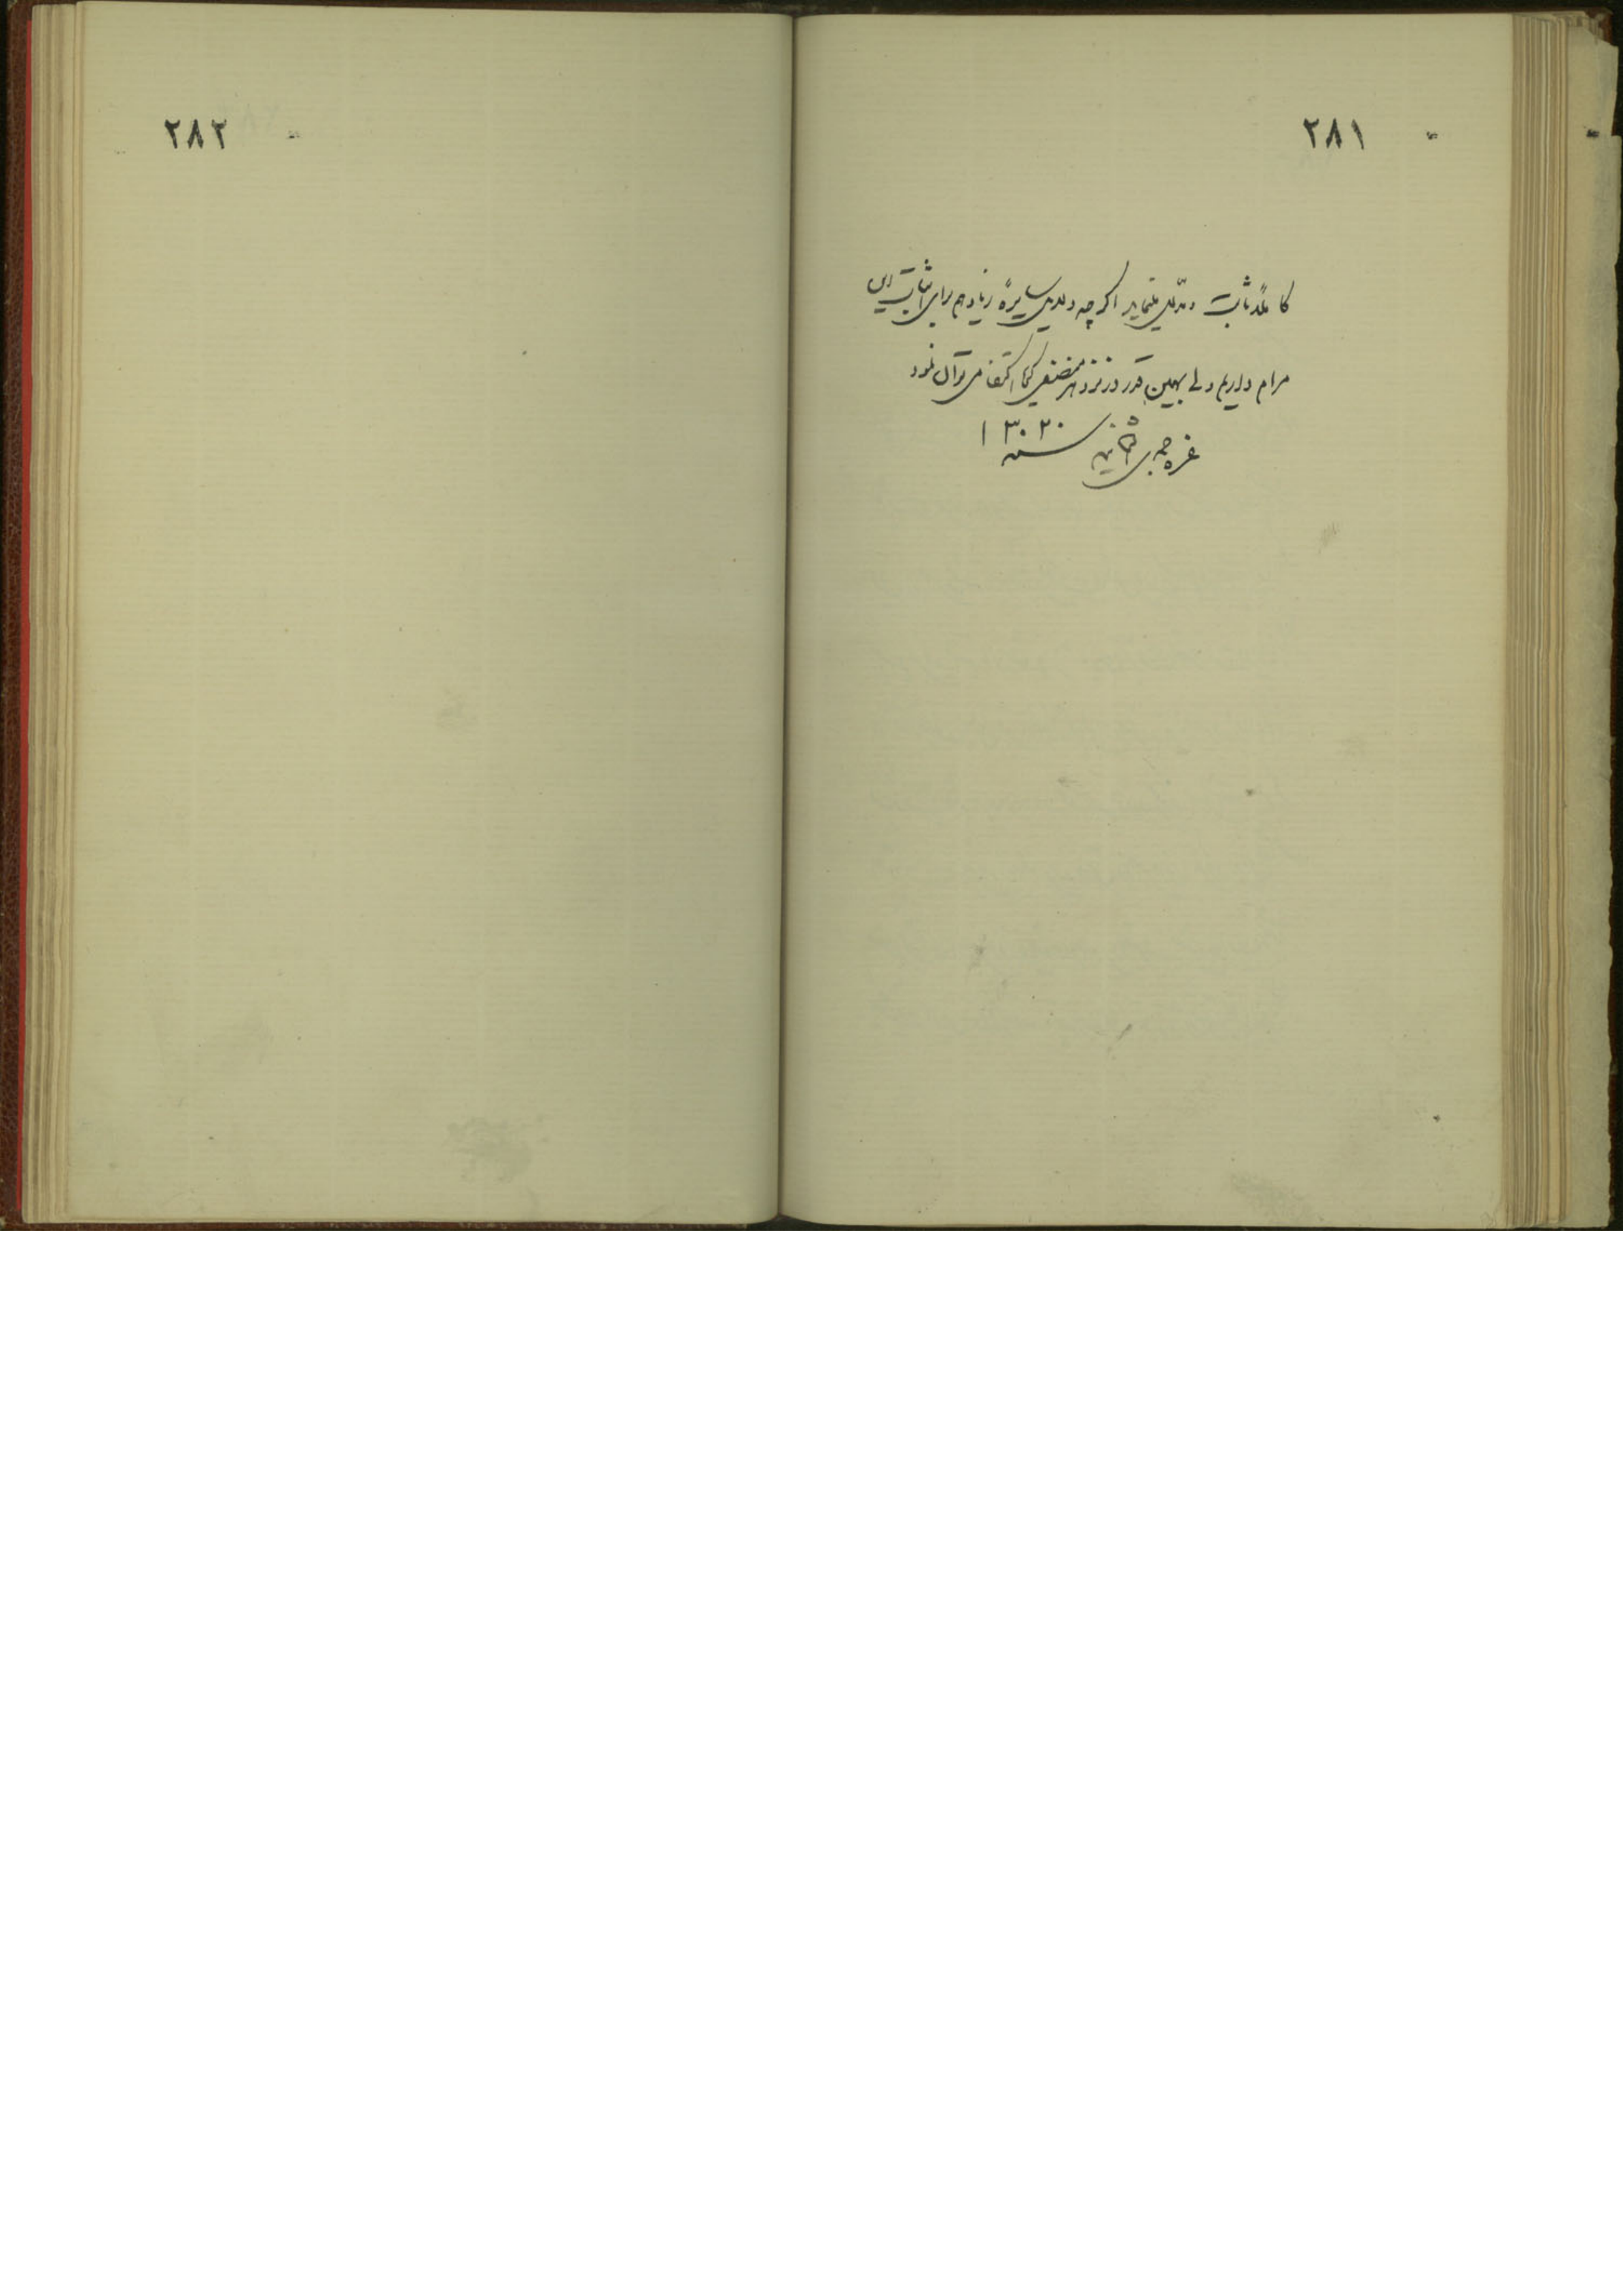 ۲۸۱
کاملاً ثابت و مدلل مینماید اگرچه دلایل سایرهٔ زیاد هم برای اثبات این
مرام داریم ولی بهمین قدر در نزد هر منصفی اکتفا می‌توان نمود
غره جمادی الثانیه سنه ۱۳۰۲۰
۲۸۲